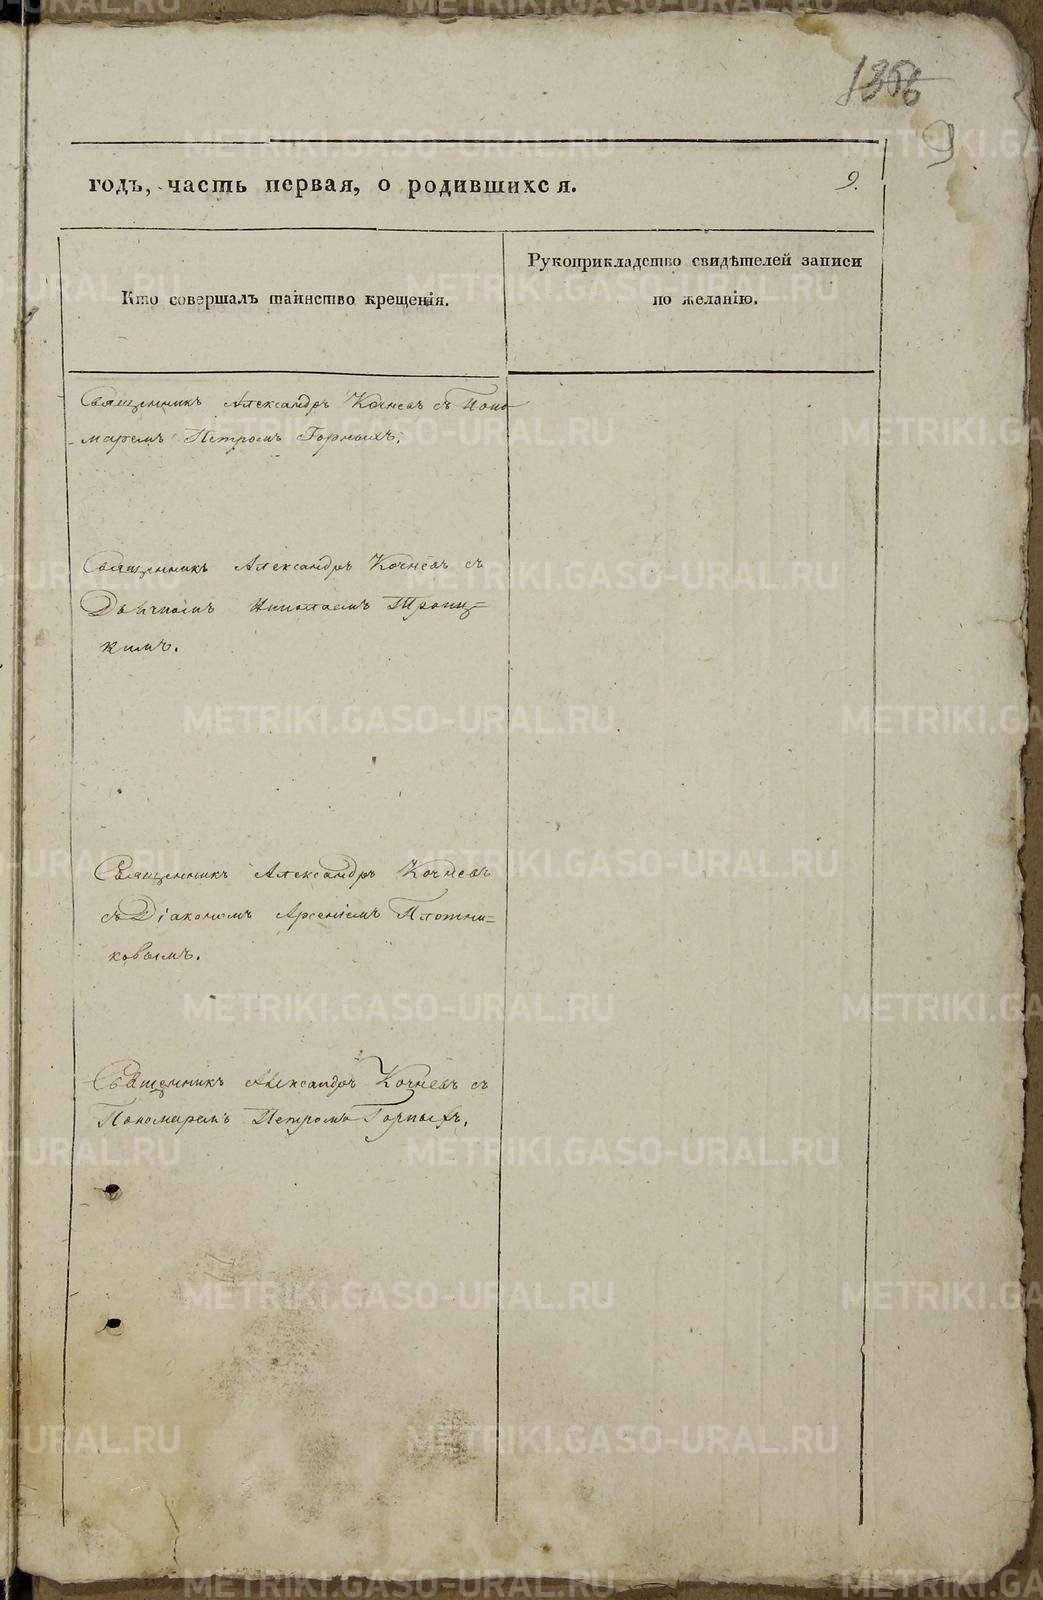 9
годъ, часть первая, о родившихся.
9.
Кто совершалъ таинство крещенія.
Рукоприкладство свидѣтелей записи
по желанію.
Священникъ Александръ Кочневъ съ Поно
маремъ Петромъ Горныхъ.
Священникъ Александръ Кочневъ съ
Дьячкомъ Николаемъ Троиц=
кимъ.
Священникъ Александръ Кочневъ
съ Діакономъ Арсеніемъ Плотни=
ковымъ.
Священникъ Александръ Кочневъ съ
Пономаремъ Петромъ Горныхъ.
METRIKI.GASO-URAL.RU